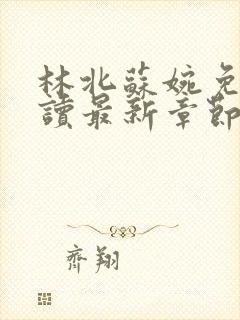 林北蘇婉免
讀最新章節
齊翔